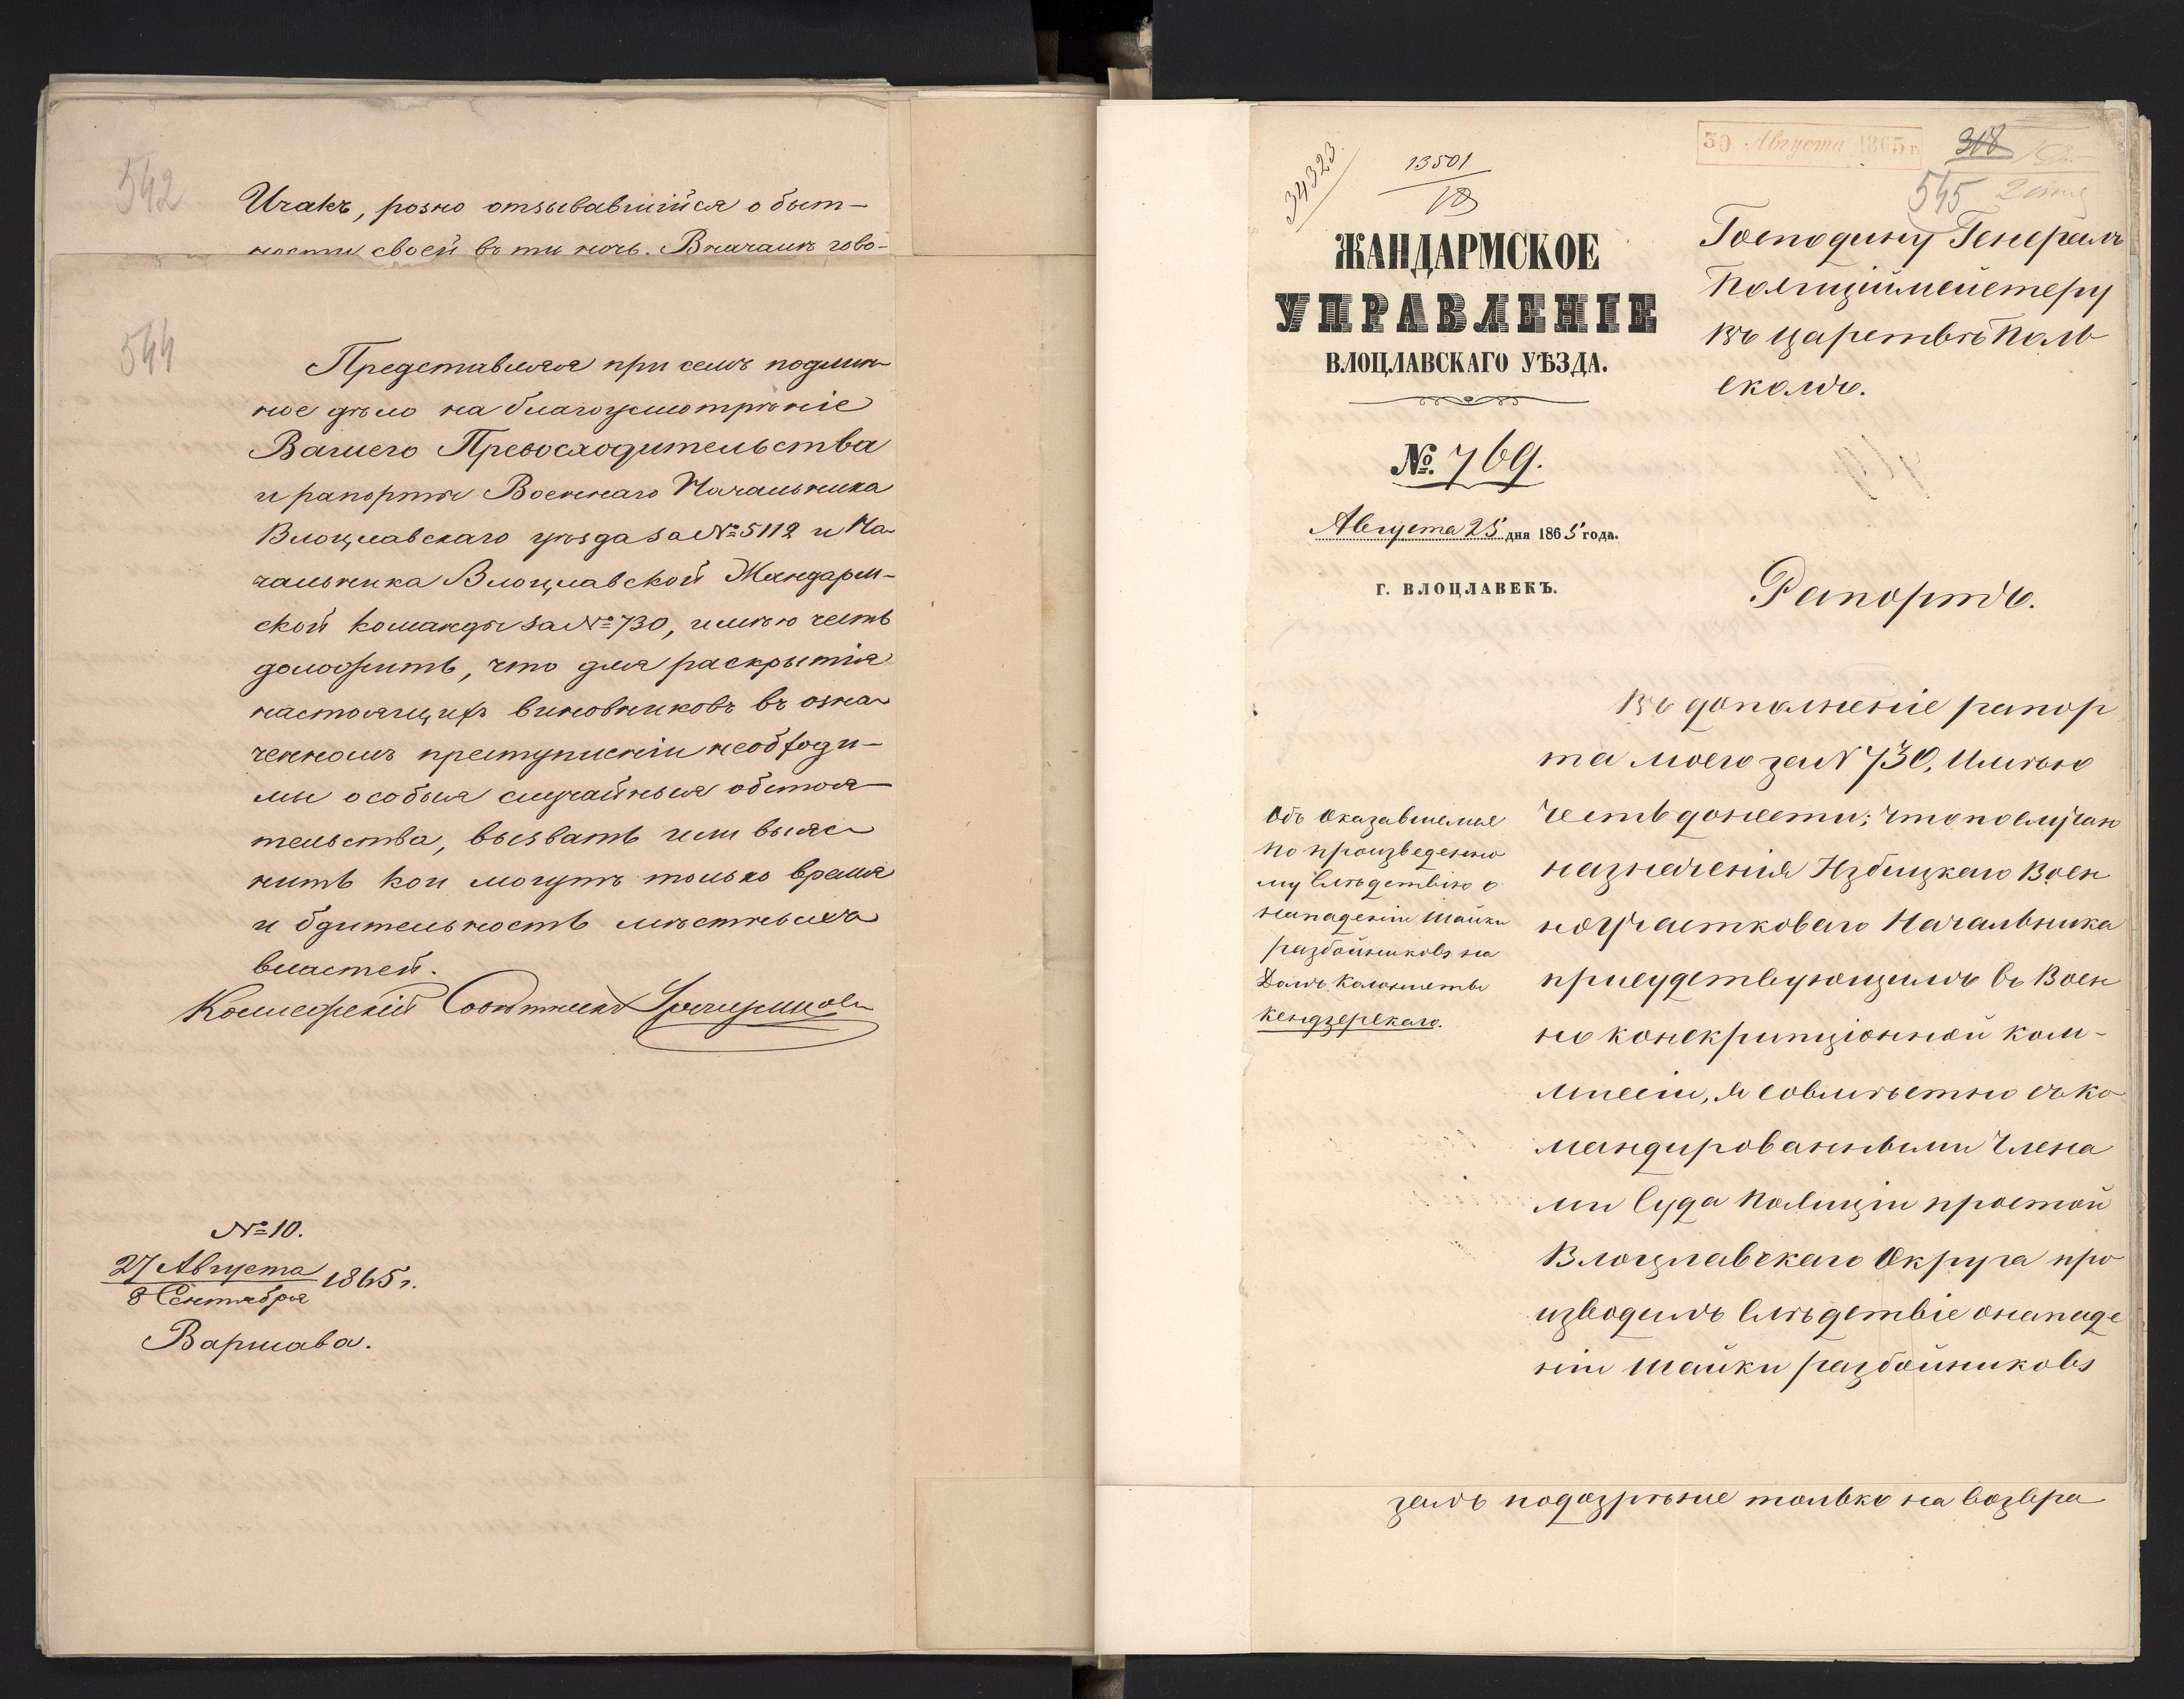 542
Игакъ, розно отзывавшійся о быт-
ности своей въ ту ночь. Вначалѣ гово-
544
Представляя при семъ подлин-
ное дѣло на благоусмотрѣніе
Вашего Превосходительства
и рапорты Военнаго Начальника
Влоцлавскаго уѣзда за № 5112 и На-
чальника Влоцлавской Жандарм-
ской команды за № 730, имѣю честь
доложить, что для раскрытія
настоящихъ виновниковъ въ озна-
ченномъ преступленіи необходи-
мы особыя случайныя обстоя-
тельства, вызвать или выяс-
нить кои могутъ только время
и бдительность мѣстныхъ
властей.
Коллежскій Совѣтникъ
№ 10.
27 Августа
8 Сентября 1865 г.
Варшава.
34323
13501
30 Августа 1865 г.
308
545
ЖАНДАРМСКОЕ
УПРАВЛЕНІЕ
ВЛОЦЛАВСКАГО УѢЗДА.
№. 769.
Августа 25 дня 1865 года.
Г. ВЛОЦЛАВЕКЪ.
Господину Генералъ
Полиціймейстеру
въ Царствѣ Поль
скомъ.
Рапортъ.
Объ оказавшемся
по произведенно
му слѣдствію о
нападеніи шайки
разбойниковъ на
Домъ колониста
Кендзерскаго.
Въ дополненіе рапор
та моего за N 730, Имѣю
честь донести; что по случаю
назначенія Избицкаго Воен
но Участковаго Начальника
присудствующимъ въ Воен
но конскрипціонной ком-
миссіи, я совмѣстно съ ко
мандированными Члена
ми Суда Полиціи простой
Влоцлавскаго Округа про
изводилъ слѣдствіе о нападе
ніи шайки разбойниковъ
залъ подозрѣніе только на возвра